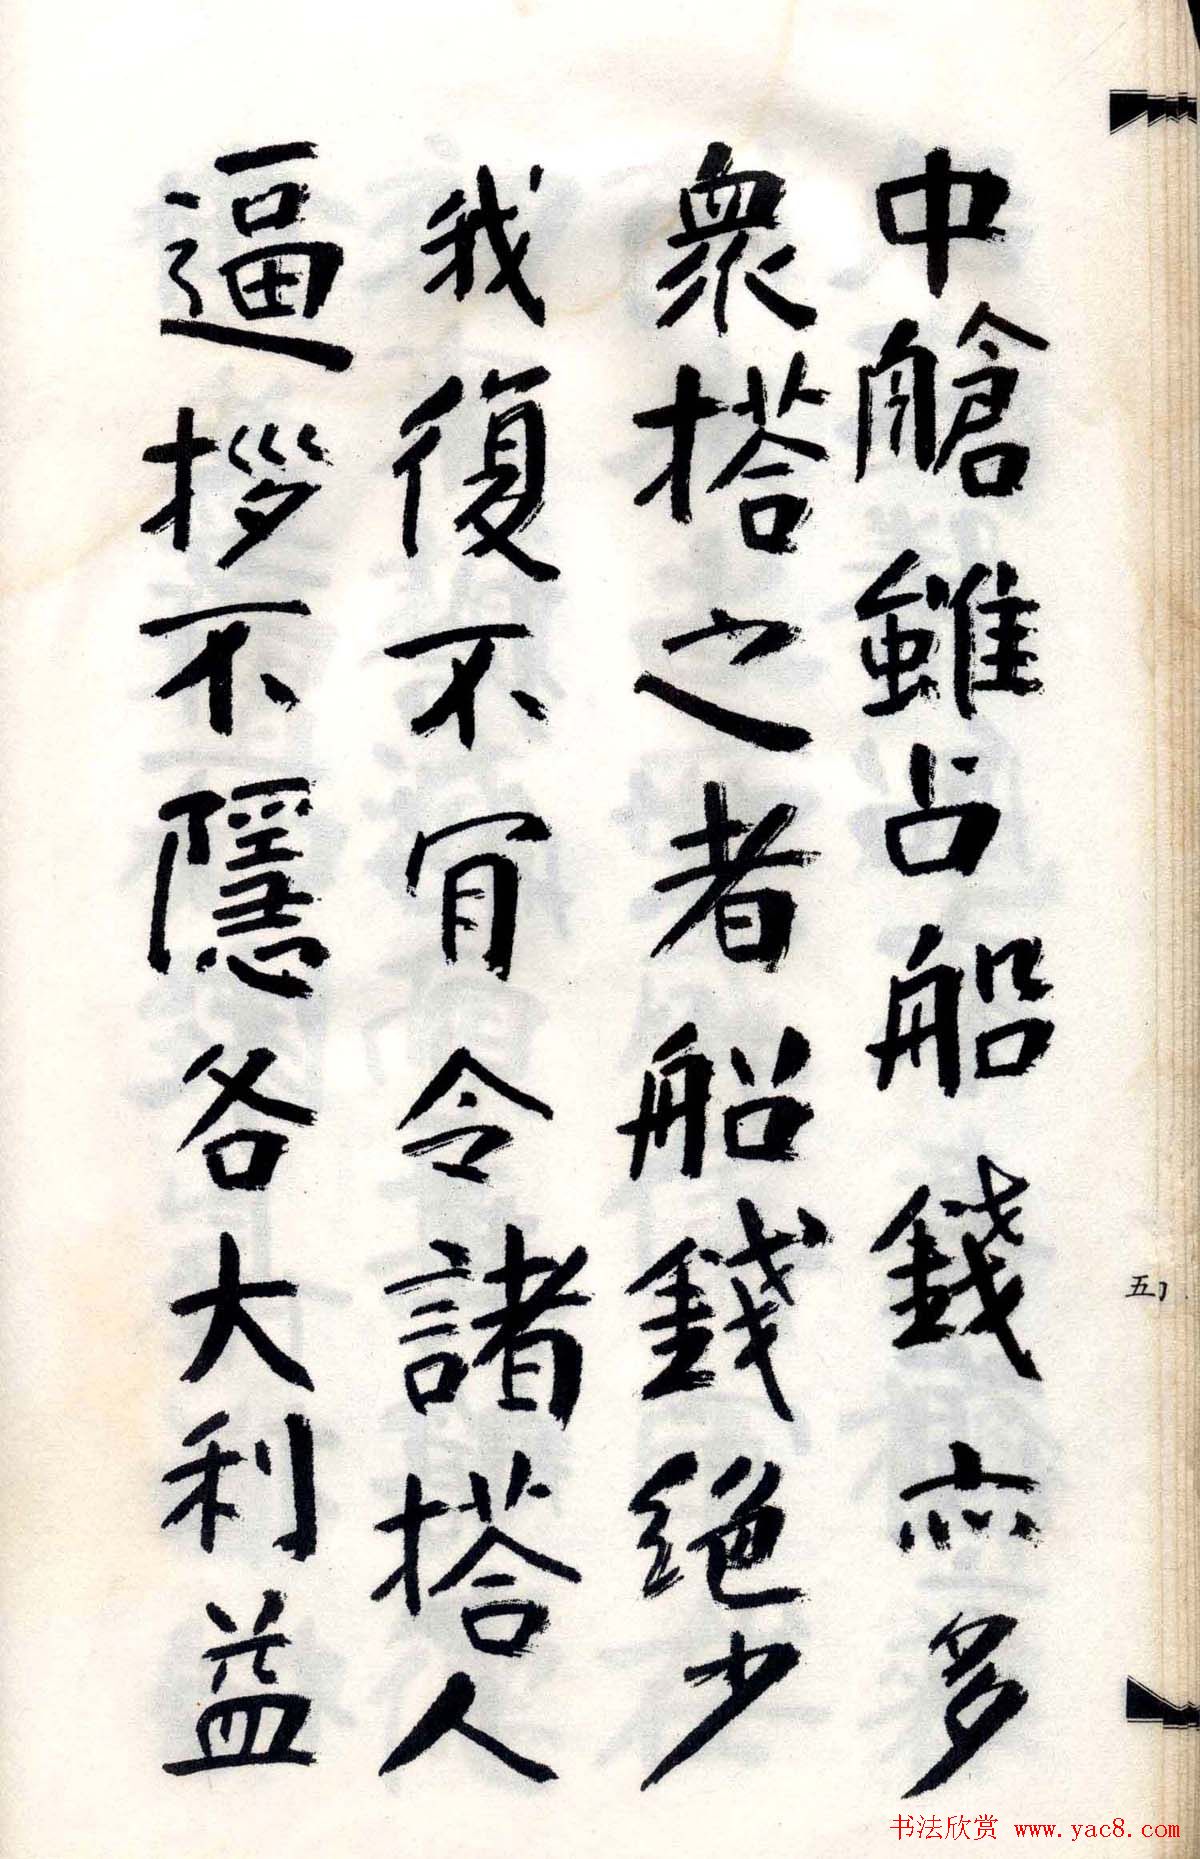 中艙雖占船錢亦多
衆搭之者船錢絕少
我復不肎令諸搭人
逼拶不隱各大利益
五
书法欣赏 www.yac8.com